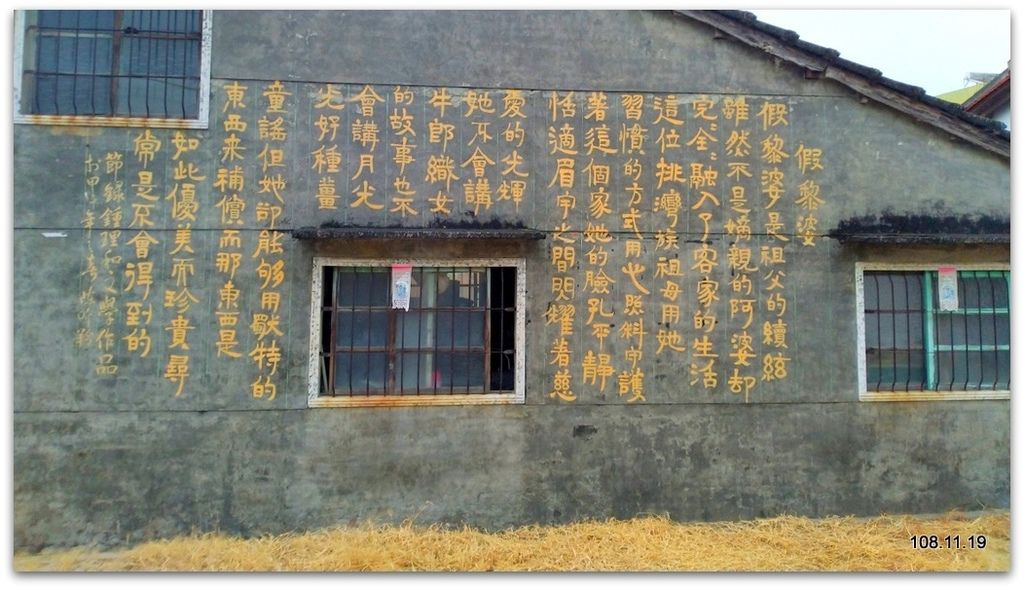 假黎婆
假黎婆是祖父的續絃
雖然不是嫡親的阿婆却
完全融入了客家的生活
這位排灣族祖母用她
習慣的方式用心照料守護
著這個家她的臉孔平靜
恬適眉宇之間閃耀著慈
愛的光輝
她不會講
牛郎織女
的故事也不
會講月光
光好種薑
童謠但她却能够用獸特的
東西来補償而那東西是
如此優美而珍貴尋
常是不會得到的
節錄鍾理和文學作品
108.11.19